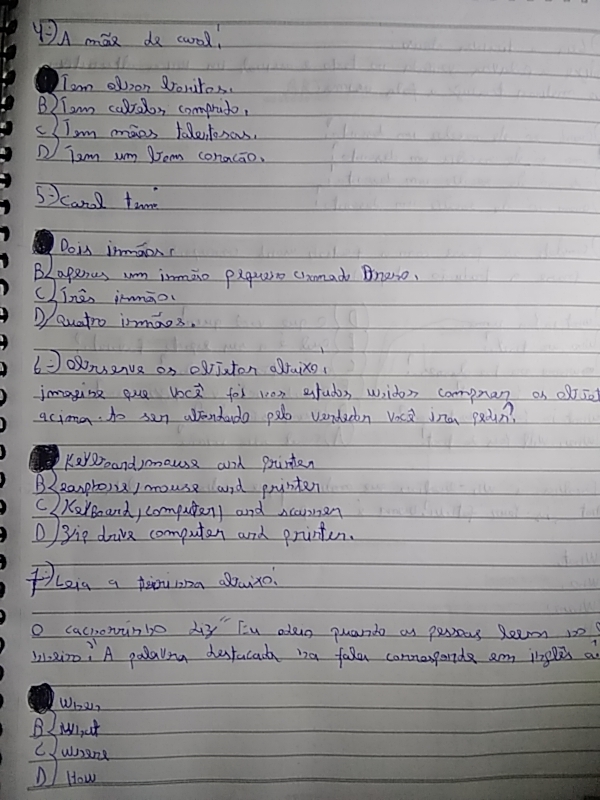 4-) A mãe de carol:
Tem olhos bonitos.
B) Tem cabelos comprido.
C) Tem mãos talentosas.
D) Tem um bom coração.
5-) carol tem:
Dois irmãos.
B) apenas um irmão pequeno chamado
C) Três irmão.
D) quatro irmãos.
6-) Observe os objetos abaixo:
imagine que você foi nos estados unidos comprar os
acima. Ao ser abordado pelo vendedor você ira pedir?
Keyboard, mouse and printer
B) earphone, mouse and printer
C) Keyboard, computer, and scanner
D) Zip drive computer and printer.
7-) Leia a tirinha abaixo:
O cachorrinho diz "Eu odeio quando as pessoas leem no
A palavra destacada na fala corresponde em inglês
When
B) What
C) Where
D) How